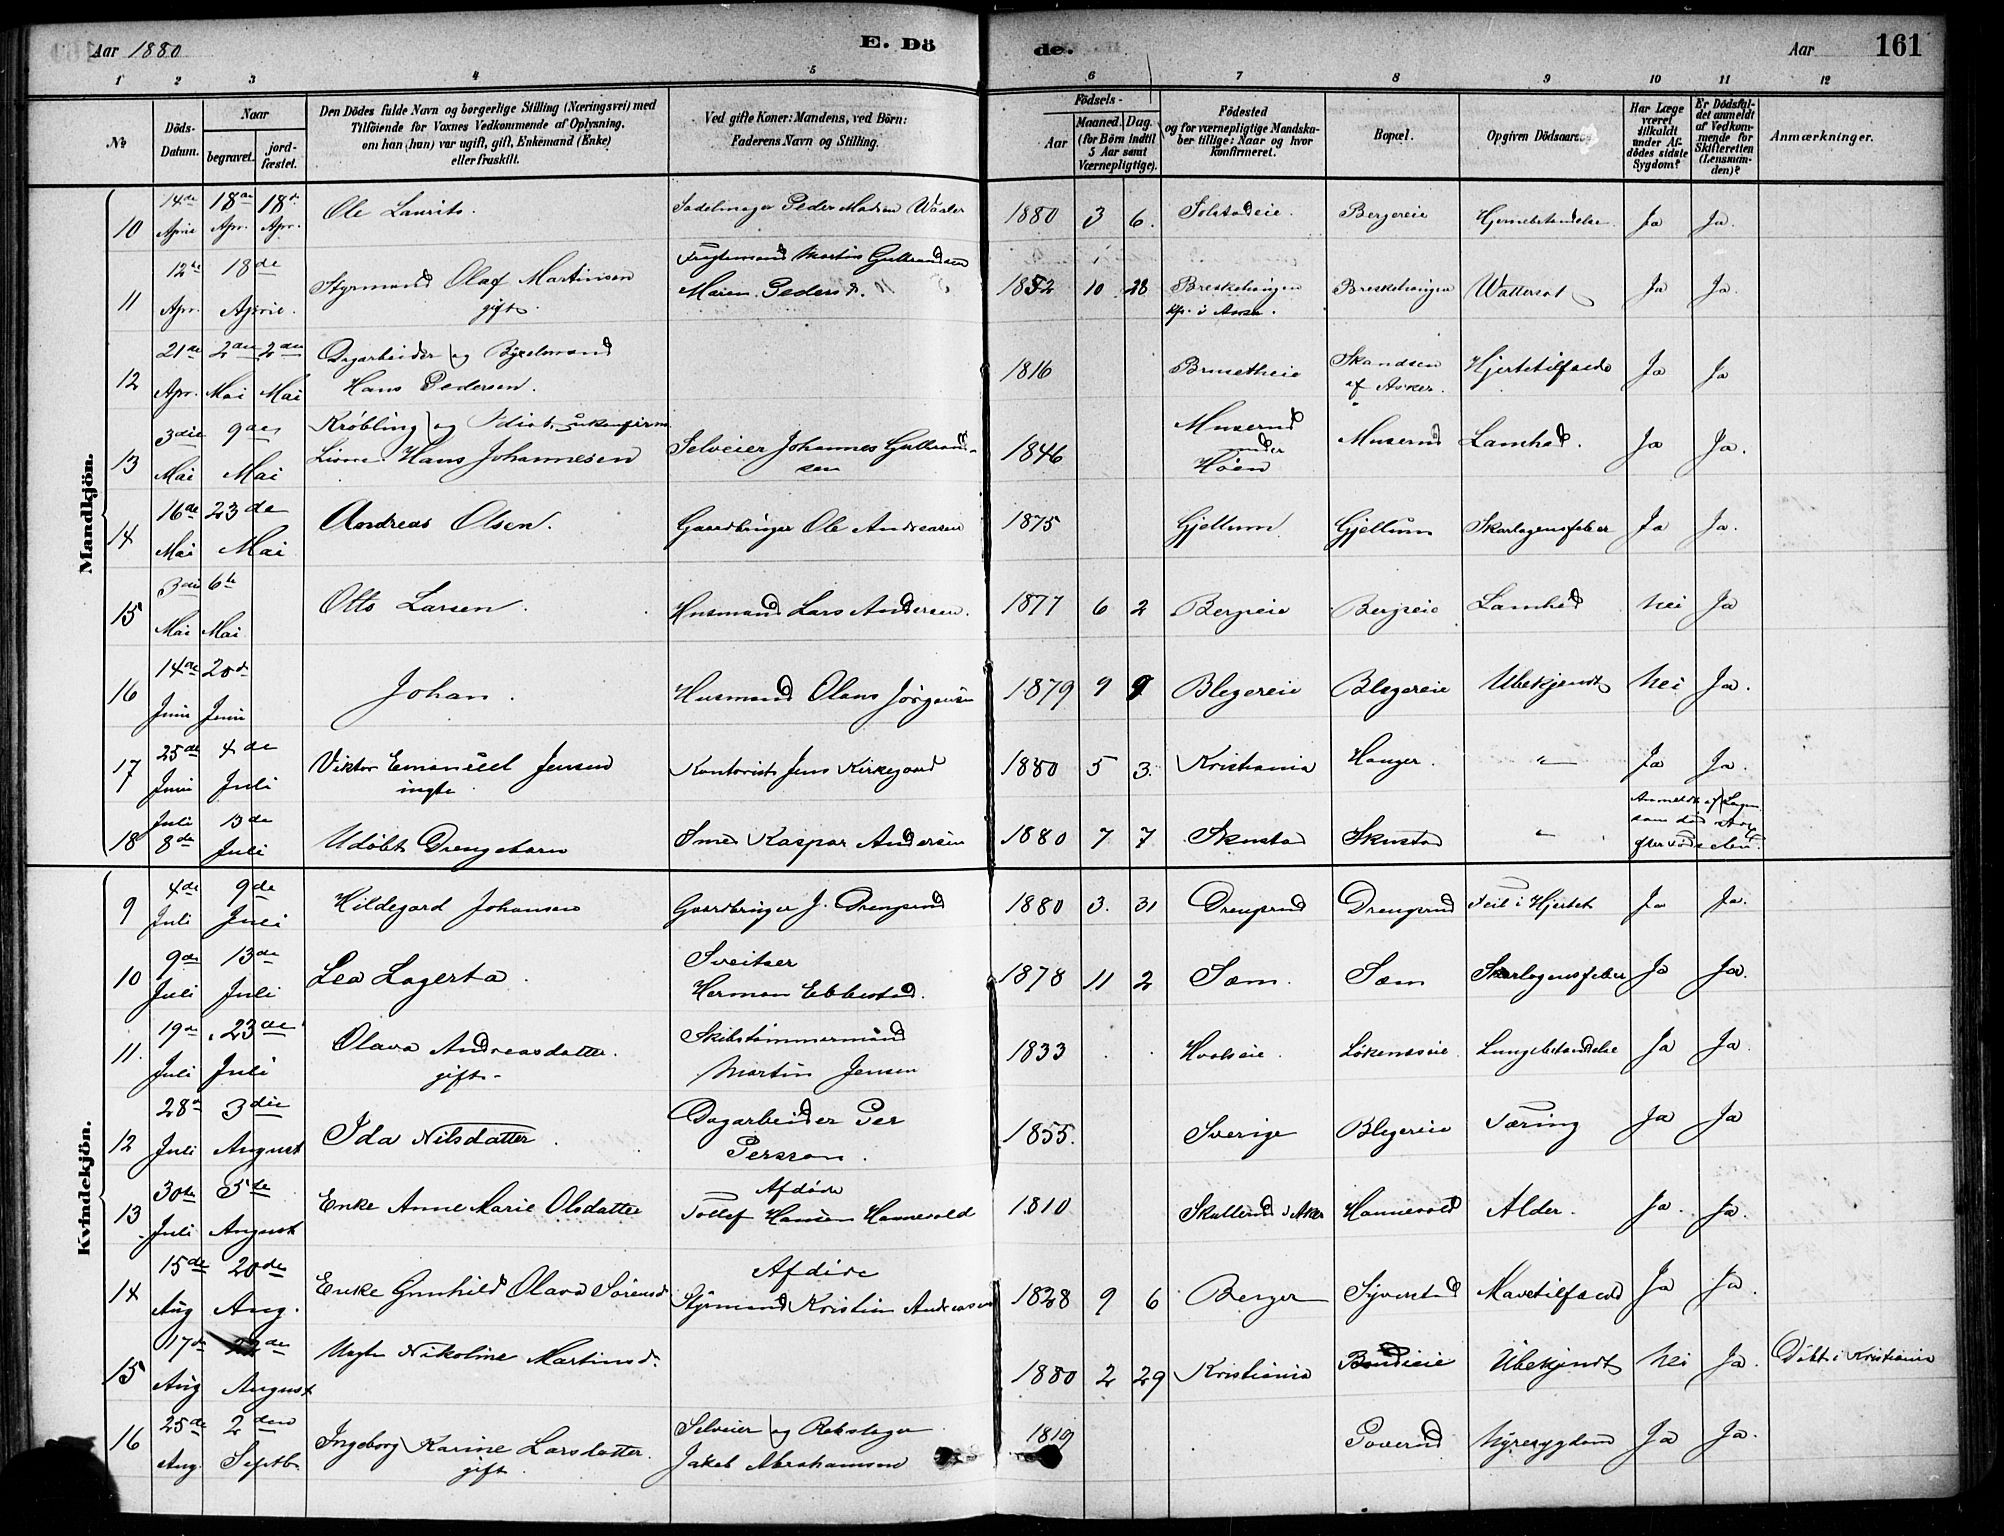 Aar 1880
E. Dö
de.
Aar
161
1 2 3 4 5 6 7 8 9 10 11 12
No
Döds-
Datum.
Naar
begravet.
jord-
fæstet.
Den Dödes fulde Navn og borgerlige Stilling (Næringsvei) med
Tilföiende for Voxnes Vedkommende af Oplysning,
om han (hun) var ugift, gift, Enkemand (Enke)
eller fraskilt.
Ved gifte Koner: Mandens, ved Börn:
Faderens Navn og Stilling.
Födsels-
Aar
Maaned. Dag.
(for Börn indtil
5 Aar samt
Værnepligtige).
Födested
og for værnepligtige Mandska-
ber tillige: Naar og hvor
konfirmeret.
Bopæl.
Opgiven Dödsaarsag
Har Læge
været
tilkaldt
under Af-
dödes sidste
Sygdom?
Er Dödsfal-
det anmeldt
af Vedkom-
mende for
Skifteretten
(Lensman-
den)?
Anmærkninger.
Mandkjön.
10 14de April 18de Apr. 18de Apr. Ole Laurits. Sadelmager Peder Madsen Waaler 1880 3 6. Solstadeie. Bergereie Hjernebetændelse Ja Ja.
11 12te Apr. 18de April. Styrmand Olaf Martinsen gift. Fragtemand Martin Gulbrandsen Maren Pedersd. 1852 10 28 Breskehaugen Kfr. i Asker. Breskehaugen Wattersot Ja Ja.
12 21de Apr. 2den Mai 2den Mai Dagarbeider og Bygselmand Hans Pedersen. 1816 Brusetheie Skandsen af Asker. Hjertetilfælde Ja Ja
13 3die Mai 9de Mai Krøbling og Idiot, ukonfirm. Hans Johannesen Selveier Johannes Gulbrandsen 1846 Muserud under Høen Muserud Lamhed. Ja Ja.
14 16de Mai 23de Mai Andreas Olsen. Gaardbruger Ole Andreasen 1875 Gjellum Gjellum Skarlagensfeber Ja Ja.
15 3die Mai 6te Mai Otto Larsen. Husmand Lars Andersen. 1877 6 2 Bergseie Bergseie Lamhed Nei Ja
16 14de Juni 20de Juni Johan. Husmand Olaus Jörgensen 1879 9 9 Blegereie Blegereie Ubekjendt Nei Ja.
17 25de Juni 4de Juli Viktor Emanuel Jensen Kontorist Jens Kirkegaard 1880 5 3. Kristiania Hauger. " Ja Ja.
18 Juli 8de 13de Juli Udöbt Drengebarn Smed Kaspar Andersen 1880 7 7 Skustad Skustad " Anmeldt af
Kvindekjön.
9 4de Juli 9de Juli Hildegard Johansen Gaardbruger J. Drengsrud 1880 3. 31 Drengsrud Drengsrud Feil i Hjertet Ja Ja.
10 9de Juli 13de Juli Lea Lagerta. Sveitser Herman Ebbestad. 1878 11 2 Sem. Sem Skarlagensfeber Ja Ja.
11. 19de Juli 23de Juli Olava Andreasdatter. gift. Skibstömmermand Martin Jensen 1833 Hvalseie. Lökeneseie. Lungebetændelse Ja Ja.
12 28de Juli 3die August Ida Nilsdatter. Dagarbeider Per Persson. 1855. Sverige Blegereie Tæring Ja Ja
13 30te Juli 5te August Enke Anne Marie Olsdatter Afdöde Tollef Hansen Hannevold 1810 Skullerud i Aker Hannevold Alder. Ja. Ja.
14 15de Aug 20de Aug. Enke Gunhild Olava Sörensd. Afdöde Styrmand Kristian Andreasen 1828 9 6 Berger Syverstad Mavetilfælde Ja Ja.
15 17de Aug August Uægte Nikoline Martinsd. 1880 2 29 Kristiania Ubekjendt Nei Ja. Döbt i Kristiania
16 25de Aug. 2den Septb. Ingeborg Karine Larsdatter. gift. Selveier og Rebslager Jakob Abrahamsen 1819 Poverud Nyresygdom Ja Ja.